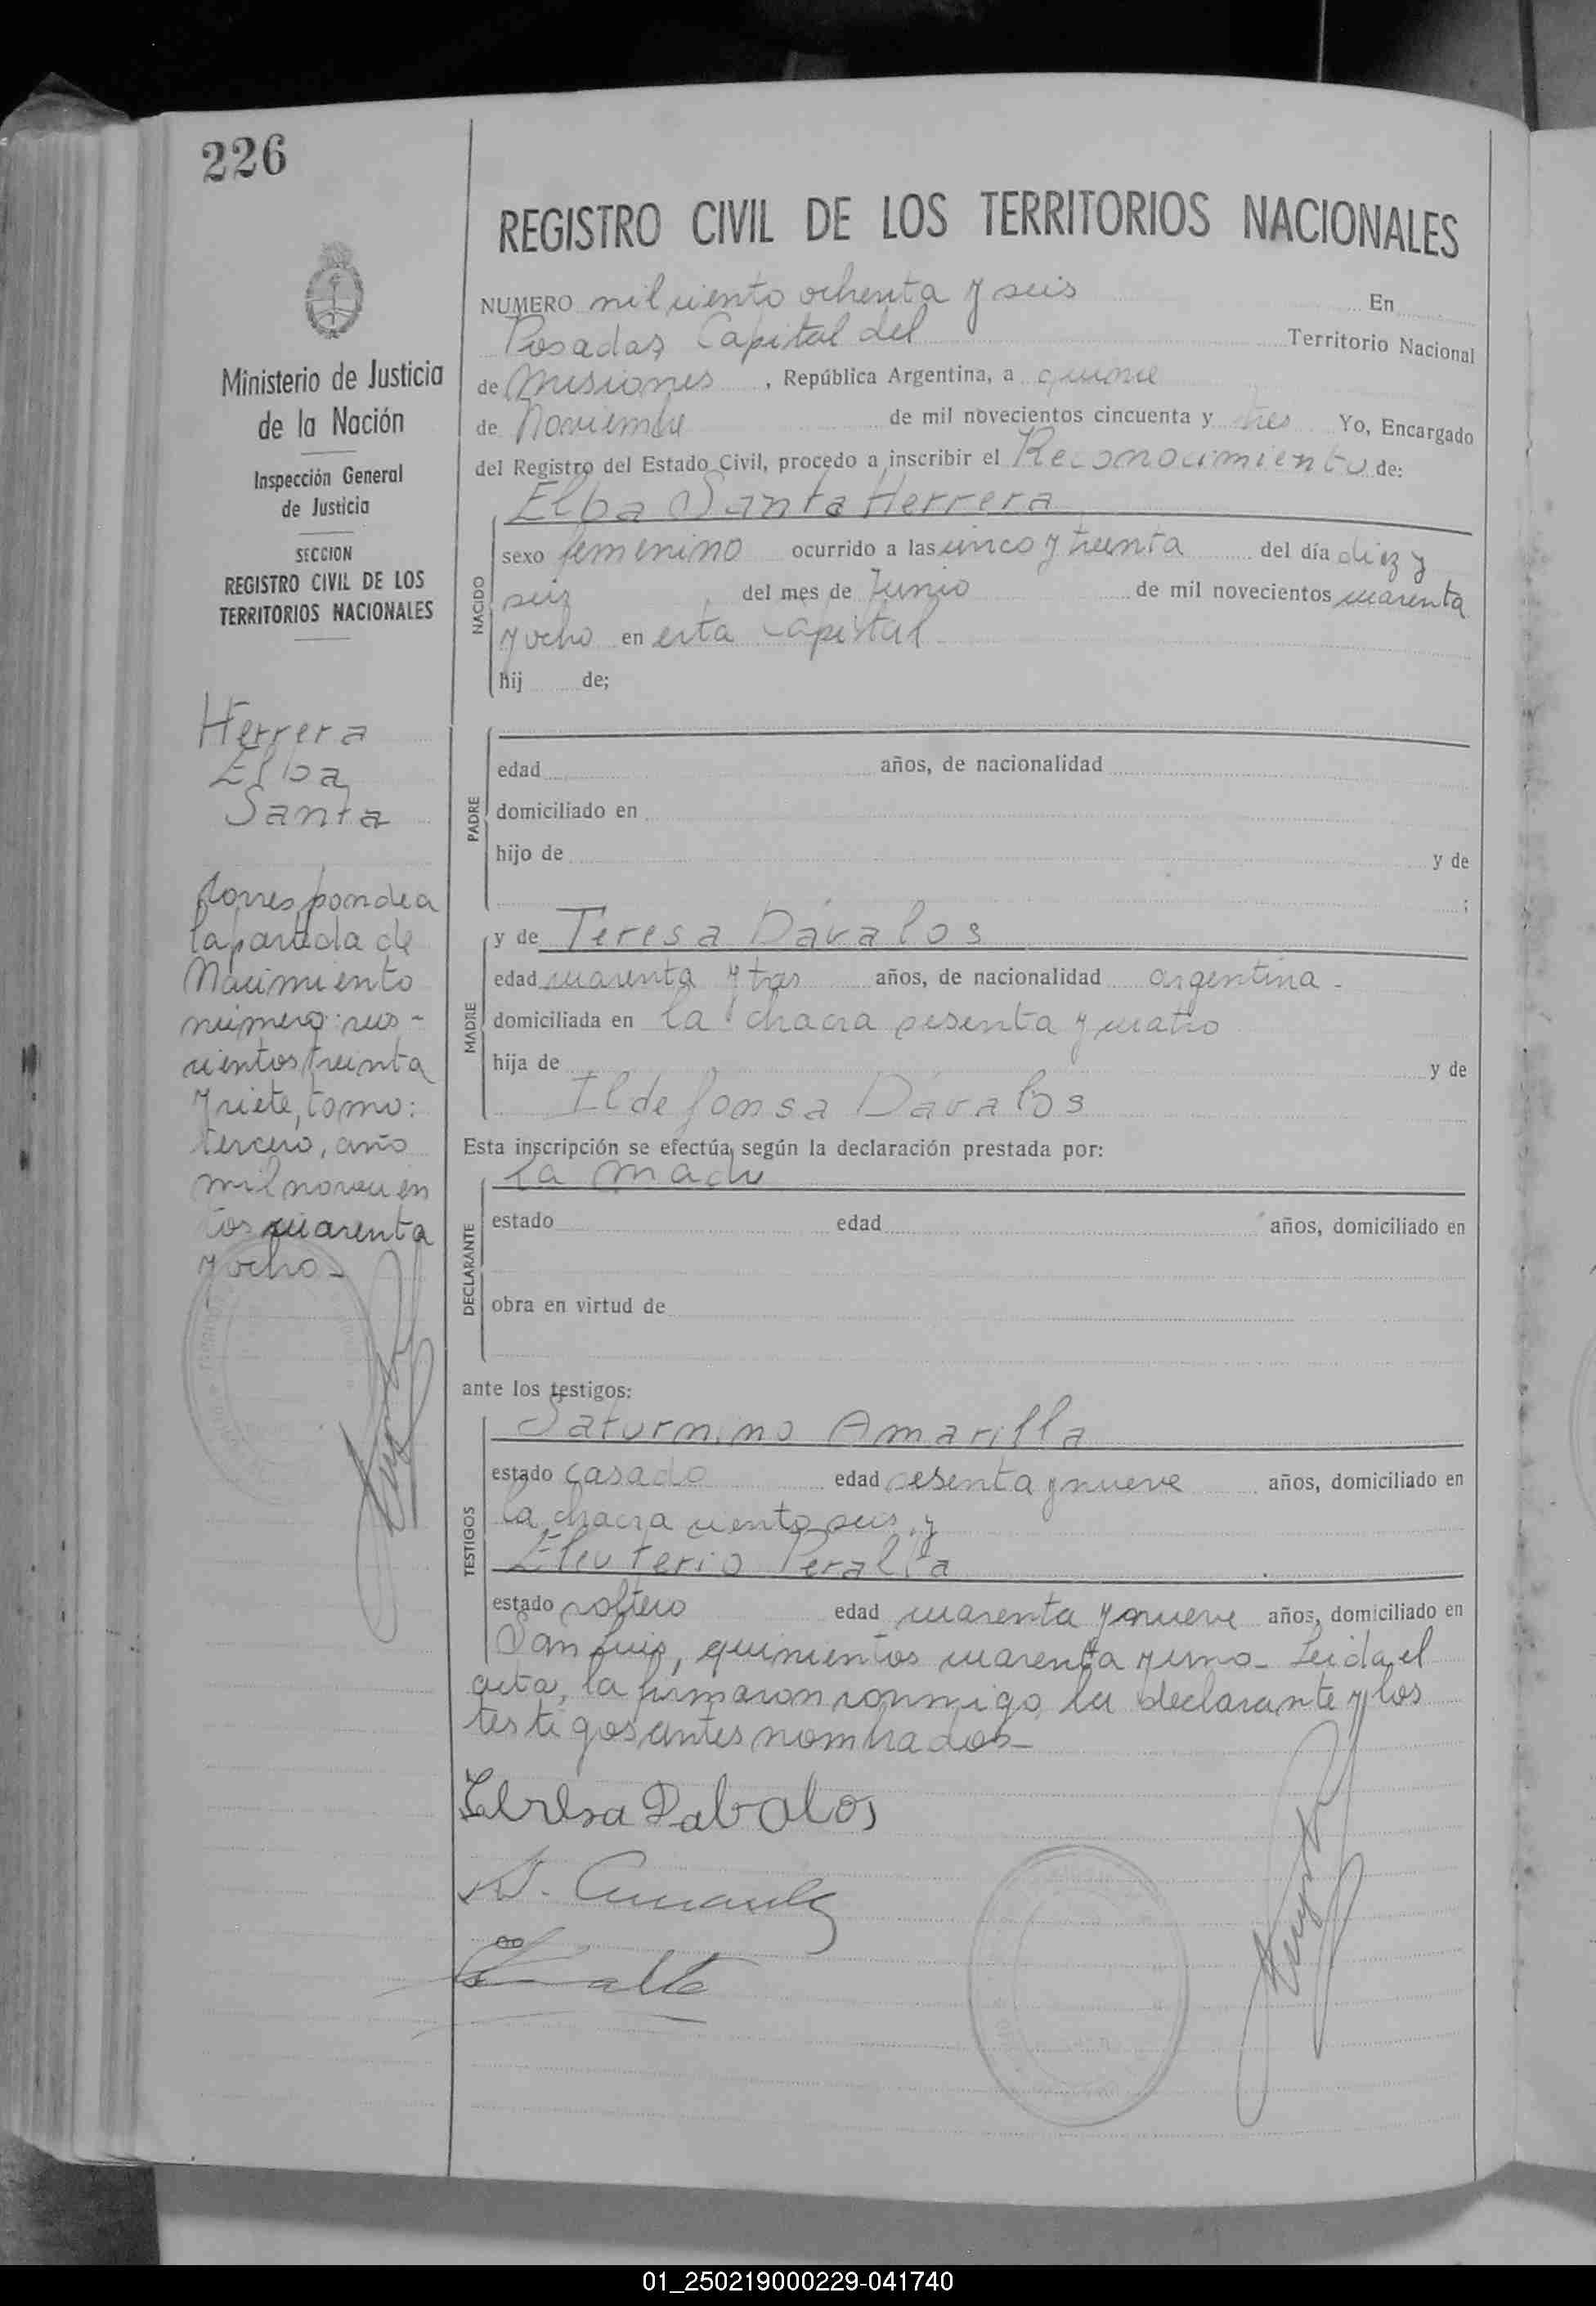 226
REGISTRO CIVIL DE LOS TERRITORIOS NACIONALES
NUMERO mil ciento ochenta y seis En
Posadas Capital del Territorio Nacional
de Misiones, República Argentina, a quince
de Noviembre de mil novecientos cincuenta y tres Yo, Encargado
del Registro del Estado Civil, procedo a inscribir el Reconocimiento de:
Elba Santa Herrera
NACIDO
sexo femenino ocurrido a las cinco y treinta del día diez y
seis del mes de Junio de mil novecientos cuarenta
y ocho en esta Capital
hij de;
PADRE
edad años, de nacionalidad
domiciliado en
hijo de y de
;
MADRE
y de Teresa Dávalos
edad cuarenta y tres años, de nacionalidad argentina -
domiciliada en la chacra sesenta y cuatro
hija de y de
Ildefonsa Dávalos
Esta inscripción se efectúa, según la declaración prestada por:
la madre
DECLARANTE
estado edad años, domiciliado en
obra en virtud de
ante los testigos:
Saturnino Amarilla
TESTIGOS
estado casado edad sesenta y nueve años, domiciliado en
la chacra ciento seis, y
Eleuterio Peralta
estado soltero edad cuarenta y nueve años, domiciliado en
San Luis, quinientos cuarenta y uno - Leida el
acta, la firmaron conmigo la declarante y los
testigos antes nombrados -
Teresa Dabalos
Ministerio de Justicia
de la Nación
Inspección General
de Justicia
SECCION
REGISTRO CIVIL DE LOS
TERRITORIOS NACIONALES
Herrera
Elba
Santa
Corresponde a
la partida de
Nacimiento
número: seis-
cientos treinta
y siete, tomo:
tercero, año
mil novecien
tos cuarenta
y ocho -
01_250219000229-041740